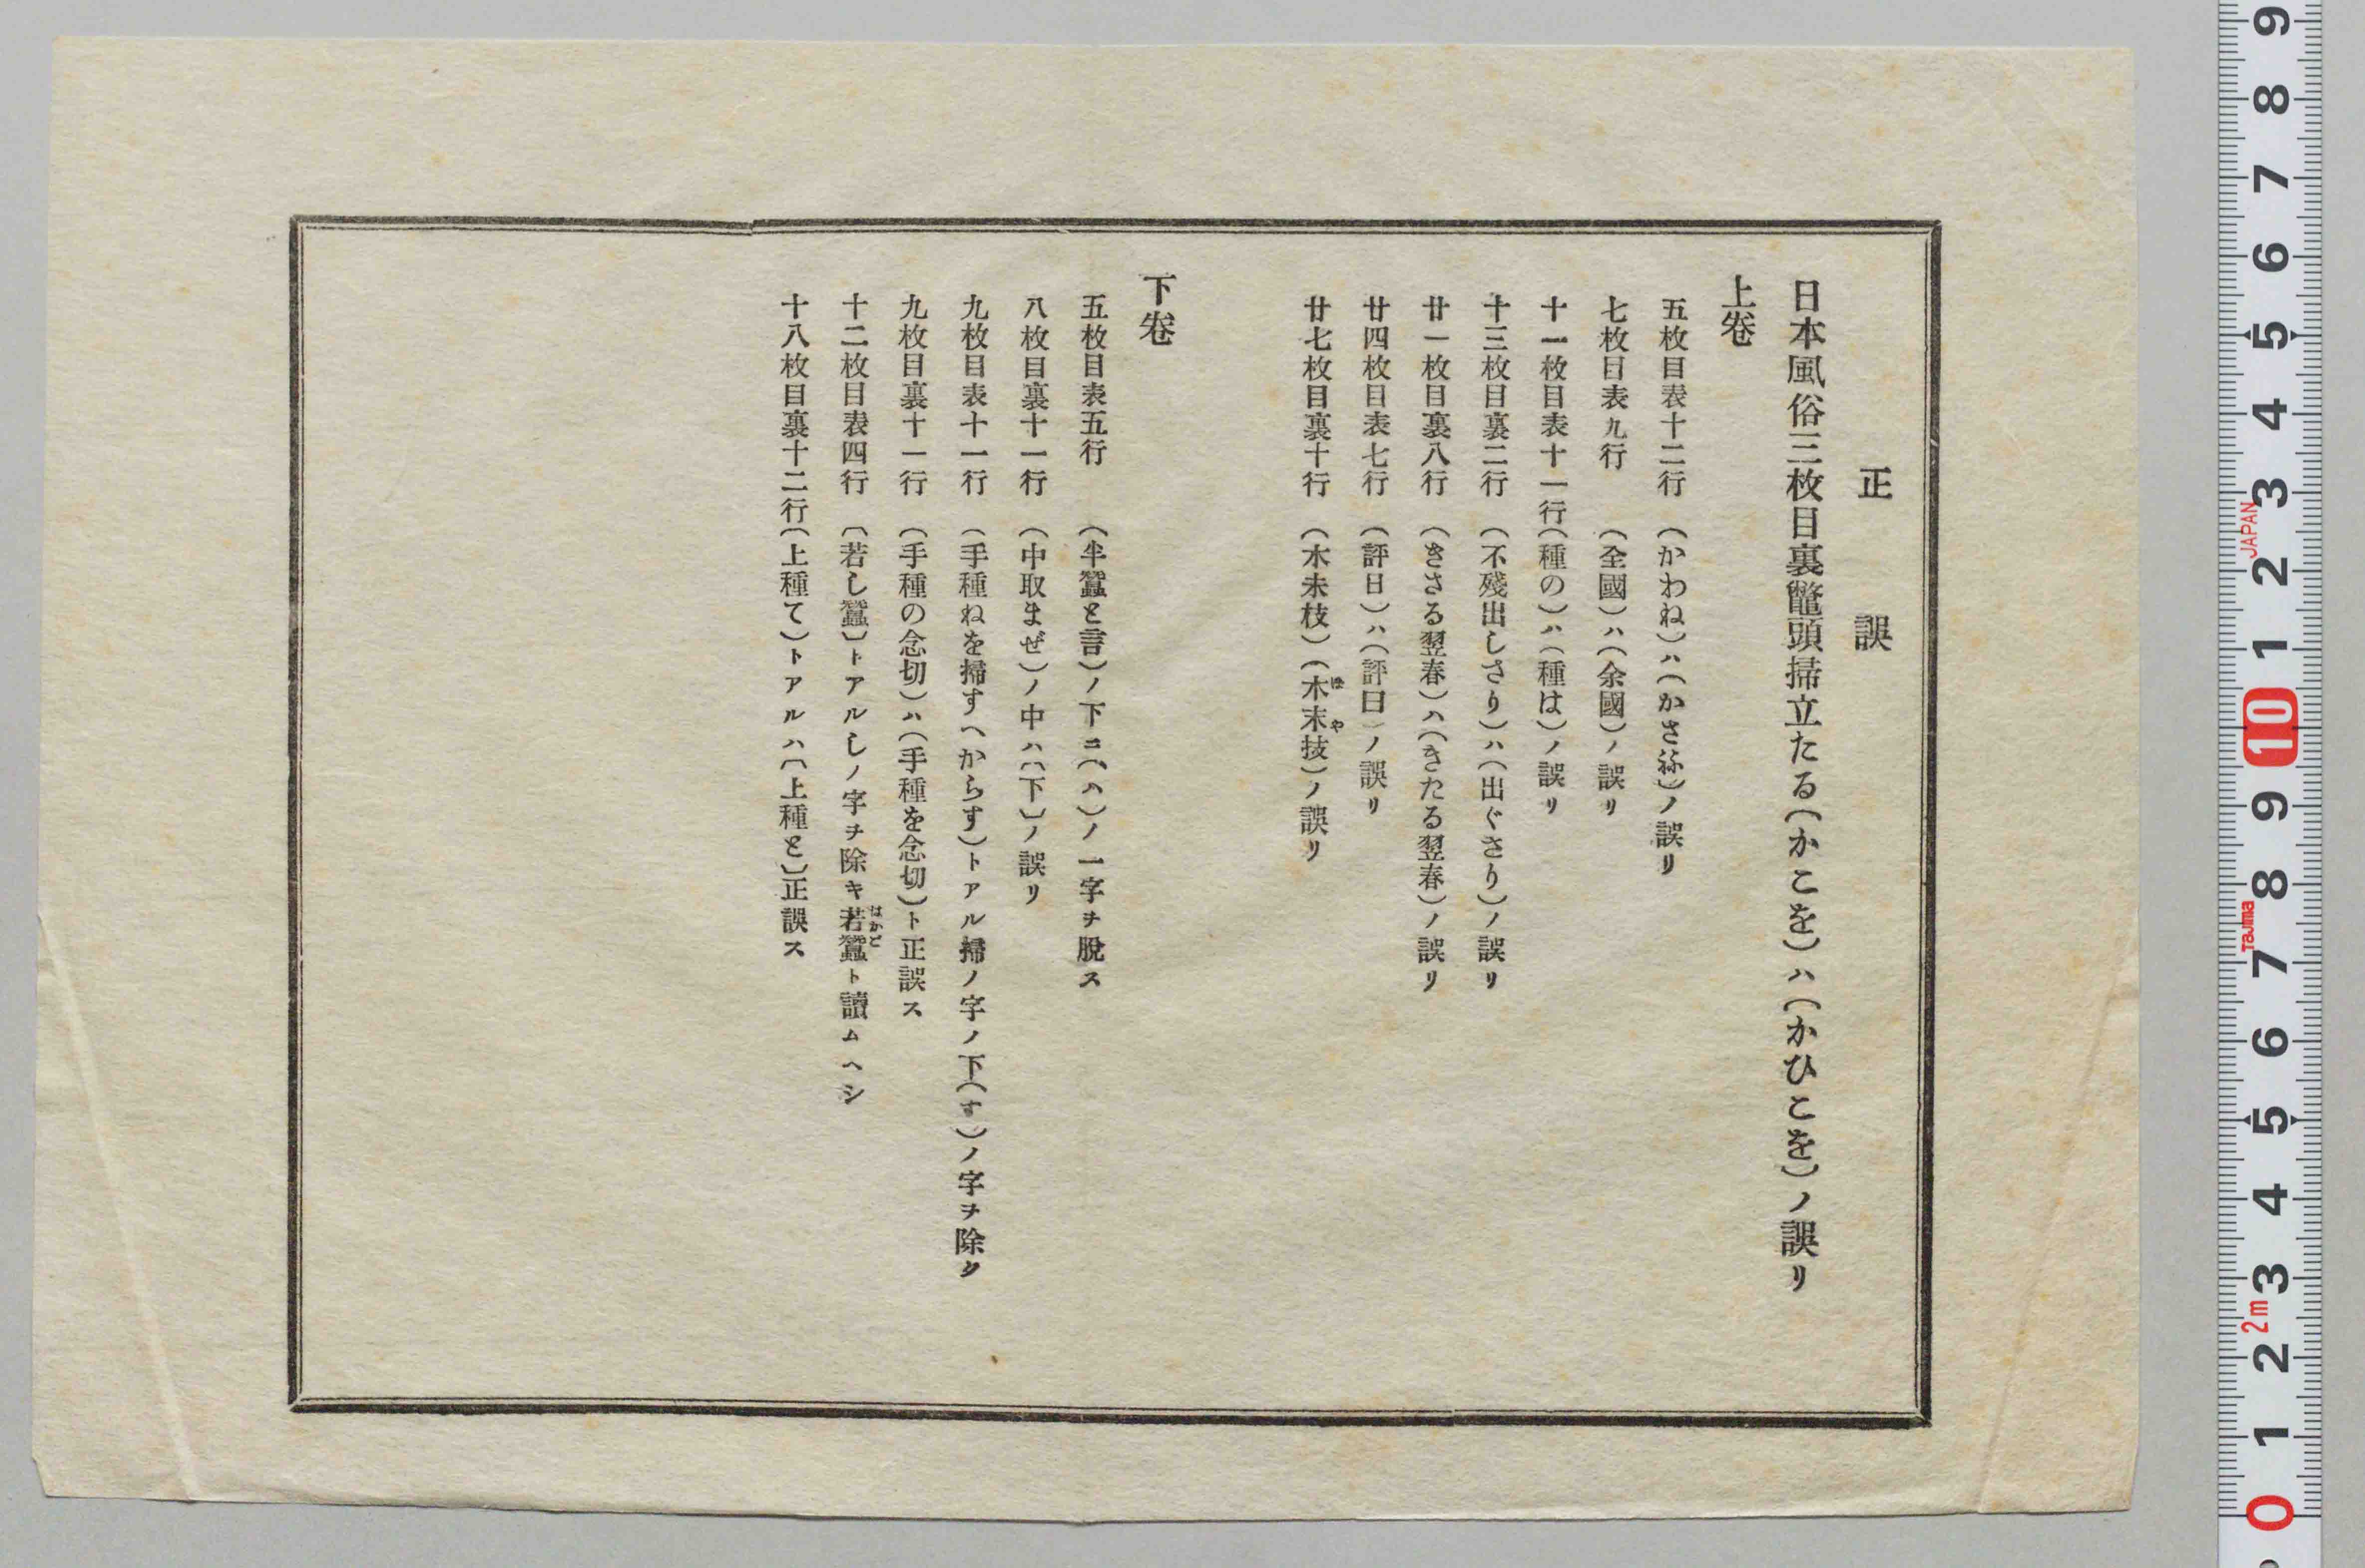 正誤
日本風俗三枚目裏鼈頭掃立たる(かこを)ハ(かひこを)ノ誤リ
上卷
五枚目表十二行(かわね)ハ(かさね)ノ誤リ
七枚目表九行(全國)ハ(余國)ノ誤リ
十一枚目表十一行(種の)ハ(種は)ノ誤リ
十三枚目裏二行(不殘出しさり)ハ(出ぐさり)ノ誤リ
廿一枚目裏八行(きさる翌春)ハ(きたる翌春)ノ誤リ
廿四枚目表七行(評日)ハ(評曰)ノ誤リ
廿七枚目裏十行(木未枝)(木末技)ノ誤リ
ほや
下卷
五枚目表五行(半蠶と言)ノ下ニ(ハ)ノ一字ヲ脫ス
八枚目裏十一行(中取まぜ)ノ中ハ(下)ノ誤リ
九枚目表十一行(手種ねを掃すへからす)トアル掃ノ字ノ下(す)ノ字ヲ除ク
九枚目裏十一行(手種の念切)ハ(手種を念切)ト正誤ス
十二枚目表四行(若し蠶)トアルしノ字ヲ除キ若蠶ト讀ムヘシ
はかご
十八枚目裏十二行(上種て)トアルハ(上種と)正誤ス
9
8
7
6
5
4
3
JAPAN
2
1
10
9
8
Tajima
7
6
5
4
3
2m
2
1
0